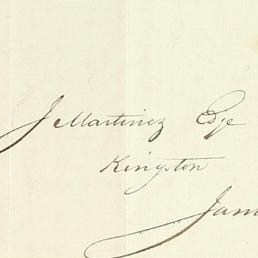 J Martinez Esqe
Kingston
Jam